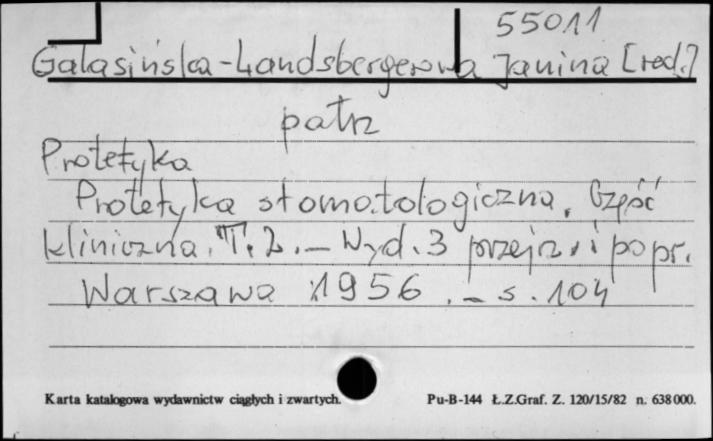 55011
Galasińska-Landsbergerowa Janina [red.]
patrz
Protetyka
Protetyka stomatologiczna. Część
kliniczna. T. 2. - Wyd. 3 przejrz. i popr.
Warszawa 1956. - s. 104
Karta katalogowa wydawnictw ciągłych i zwartych. Pu-B-144 Ł.Z.Graf. Z. 120/15/82 n. 638000.